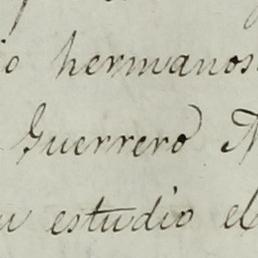 hermanos
Guerrero
estudio el